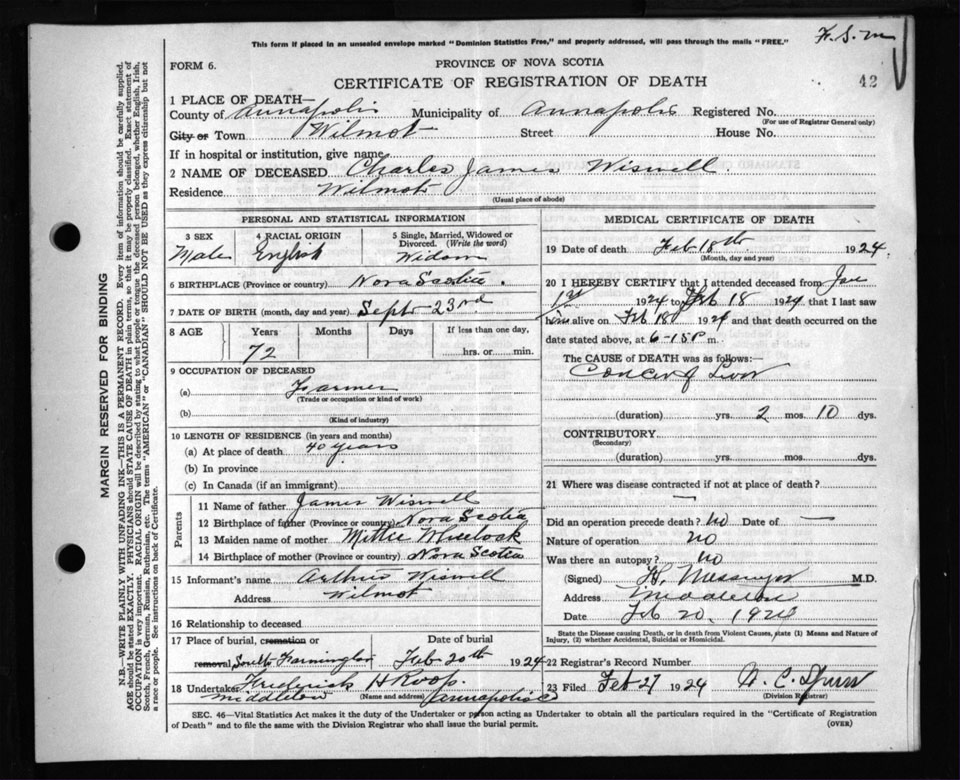 This form if placed in an unsealed envelope marked "Dominion Statistics Free," and properly addressed, will pass through the mails "FREE."
F. S. M
FORM 6.
PROVINCE OF NOVA SCOTIA
CERTIFICATE OF REGISTRATION OF DEATH
42
1 PLACE OF DEATH—
County of Annapolis Municipality of Annapolis Registered No.
(For use of Registrar General only)
City or Town Wilmot Street House No.
If in hospital or institution, give name
2 NAME OF DECEASED Charles James Wiswell.
Residence Wilmot
(Usual place of abode)
PERSONAL AND STATISTICAL INFORMATION
3 SEX 4 RACIAL ORIGIN 5 Single, Married, Widowed or Divorced. (Write the word)
Male English Widow
6 BIRTHPLACE (Province or country) Nova Scotia.
7 DATE OF BIRTH (month, day and year) Sept 23rd
8 AGE Years Months Days If less than one day,
72 hrs. or min.
9 OCCUPATION OF DECEASED
(a) Farmer
(Trade or occupation or kind of work)
(b)
(Kind of industry)
10 LENGTH OF RESIDENCE (in years and months)
(a) At place of death 40 years
(b) In province
(c) In Canada (if an immigrant)
Parents
11 Name of father James Wiswell
12 Birthplace of father (Province or country) Nova Scotia
13 Maiden name of mother Mittie Wheelock
14 Birthplace of mother (Province or country) Nova Scotia
15 Informant's name Arthur Wiswell
Address Wilmot
16 Relationship to deceased
17 Place of burial, cremation or Date of burial
removal, South Farmington Feb 20th 1924
18 Undertaker Friedrick H Roop.
Middleton (Name and address) Annapolis Co
MEDICAL CERTIFICATE OF DEATH
19 Date of death Feb 18th 1924
(Month, day and year)
20 I HEREBY CERTIFY that I attended deceased from Jan
1st 1924 to Feb 18 1924 that I last saw
him alive on Feb 18 1924 and that death occurred on
date stated above, at 6-15 P m.
The CAUSE of DEATH was as follows:
Cancer of Liver
(duration) yrs. 2 mos. 10 dys.
CONTRIBUTORY
(Secondary)
(duration) yrs. mos. dys.
21 Where was disease contracted if not at place of death?
—
Did an operation precede death? No Date of —
Nature of operation no
Was there an autopsy? no
(Signed) Messenger M.D.
Address Middleton
Date Feb 20, 1924
State the Disease causing Death, or in death from Violent Causes, state (1) Means and Nature of
Injury, (2) whether Accidental, Suicidal or Homicidal.
22 Registrar's Record Number
23 Filed Feb 27 1924
(Division Registrar)
SEC. 46—Vital Statistics Act makes it the duty of the Undertaker or person acting as Undertaker to obtain all the particulars required in the "Certificate of Registration
of Death" and to file same with the Division Registrar who shall issue the burial permit. (OVER)
MARGIN RESERVED FOR BINDING
N.B.—WRITE PLAINLY WITH UNFADING INK—THIS IS A PERMANENT RECORD. Every item of information should be carefully supplied.
AGE should be stated EXACTLY. PHYSICIANS should state CAUSE OF DEATH in plain terms, so that it may be properly classified. Exact statement of
OCCUPATION is very important. RACIAL ORIGIN will be described by stating to what people or tongue the deceased person belonged, whether English, Irish,
Scotch, French, German, Russian, Ruthenian, etc. The terms "AMERICAN" or "CANADIAN" SHOULD NOT BE USED as they express citizenship but not
a race or people. See instructions on back of Certificate.